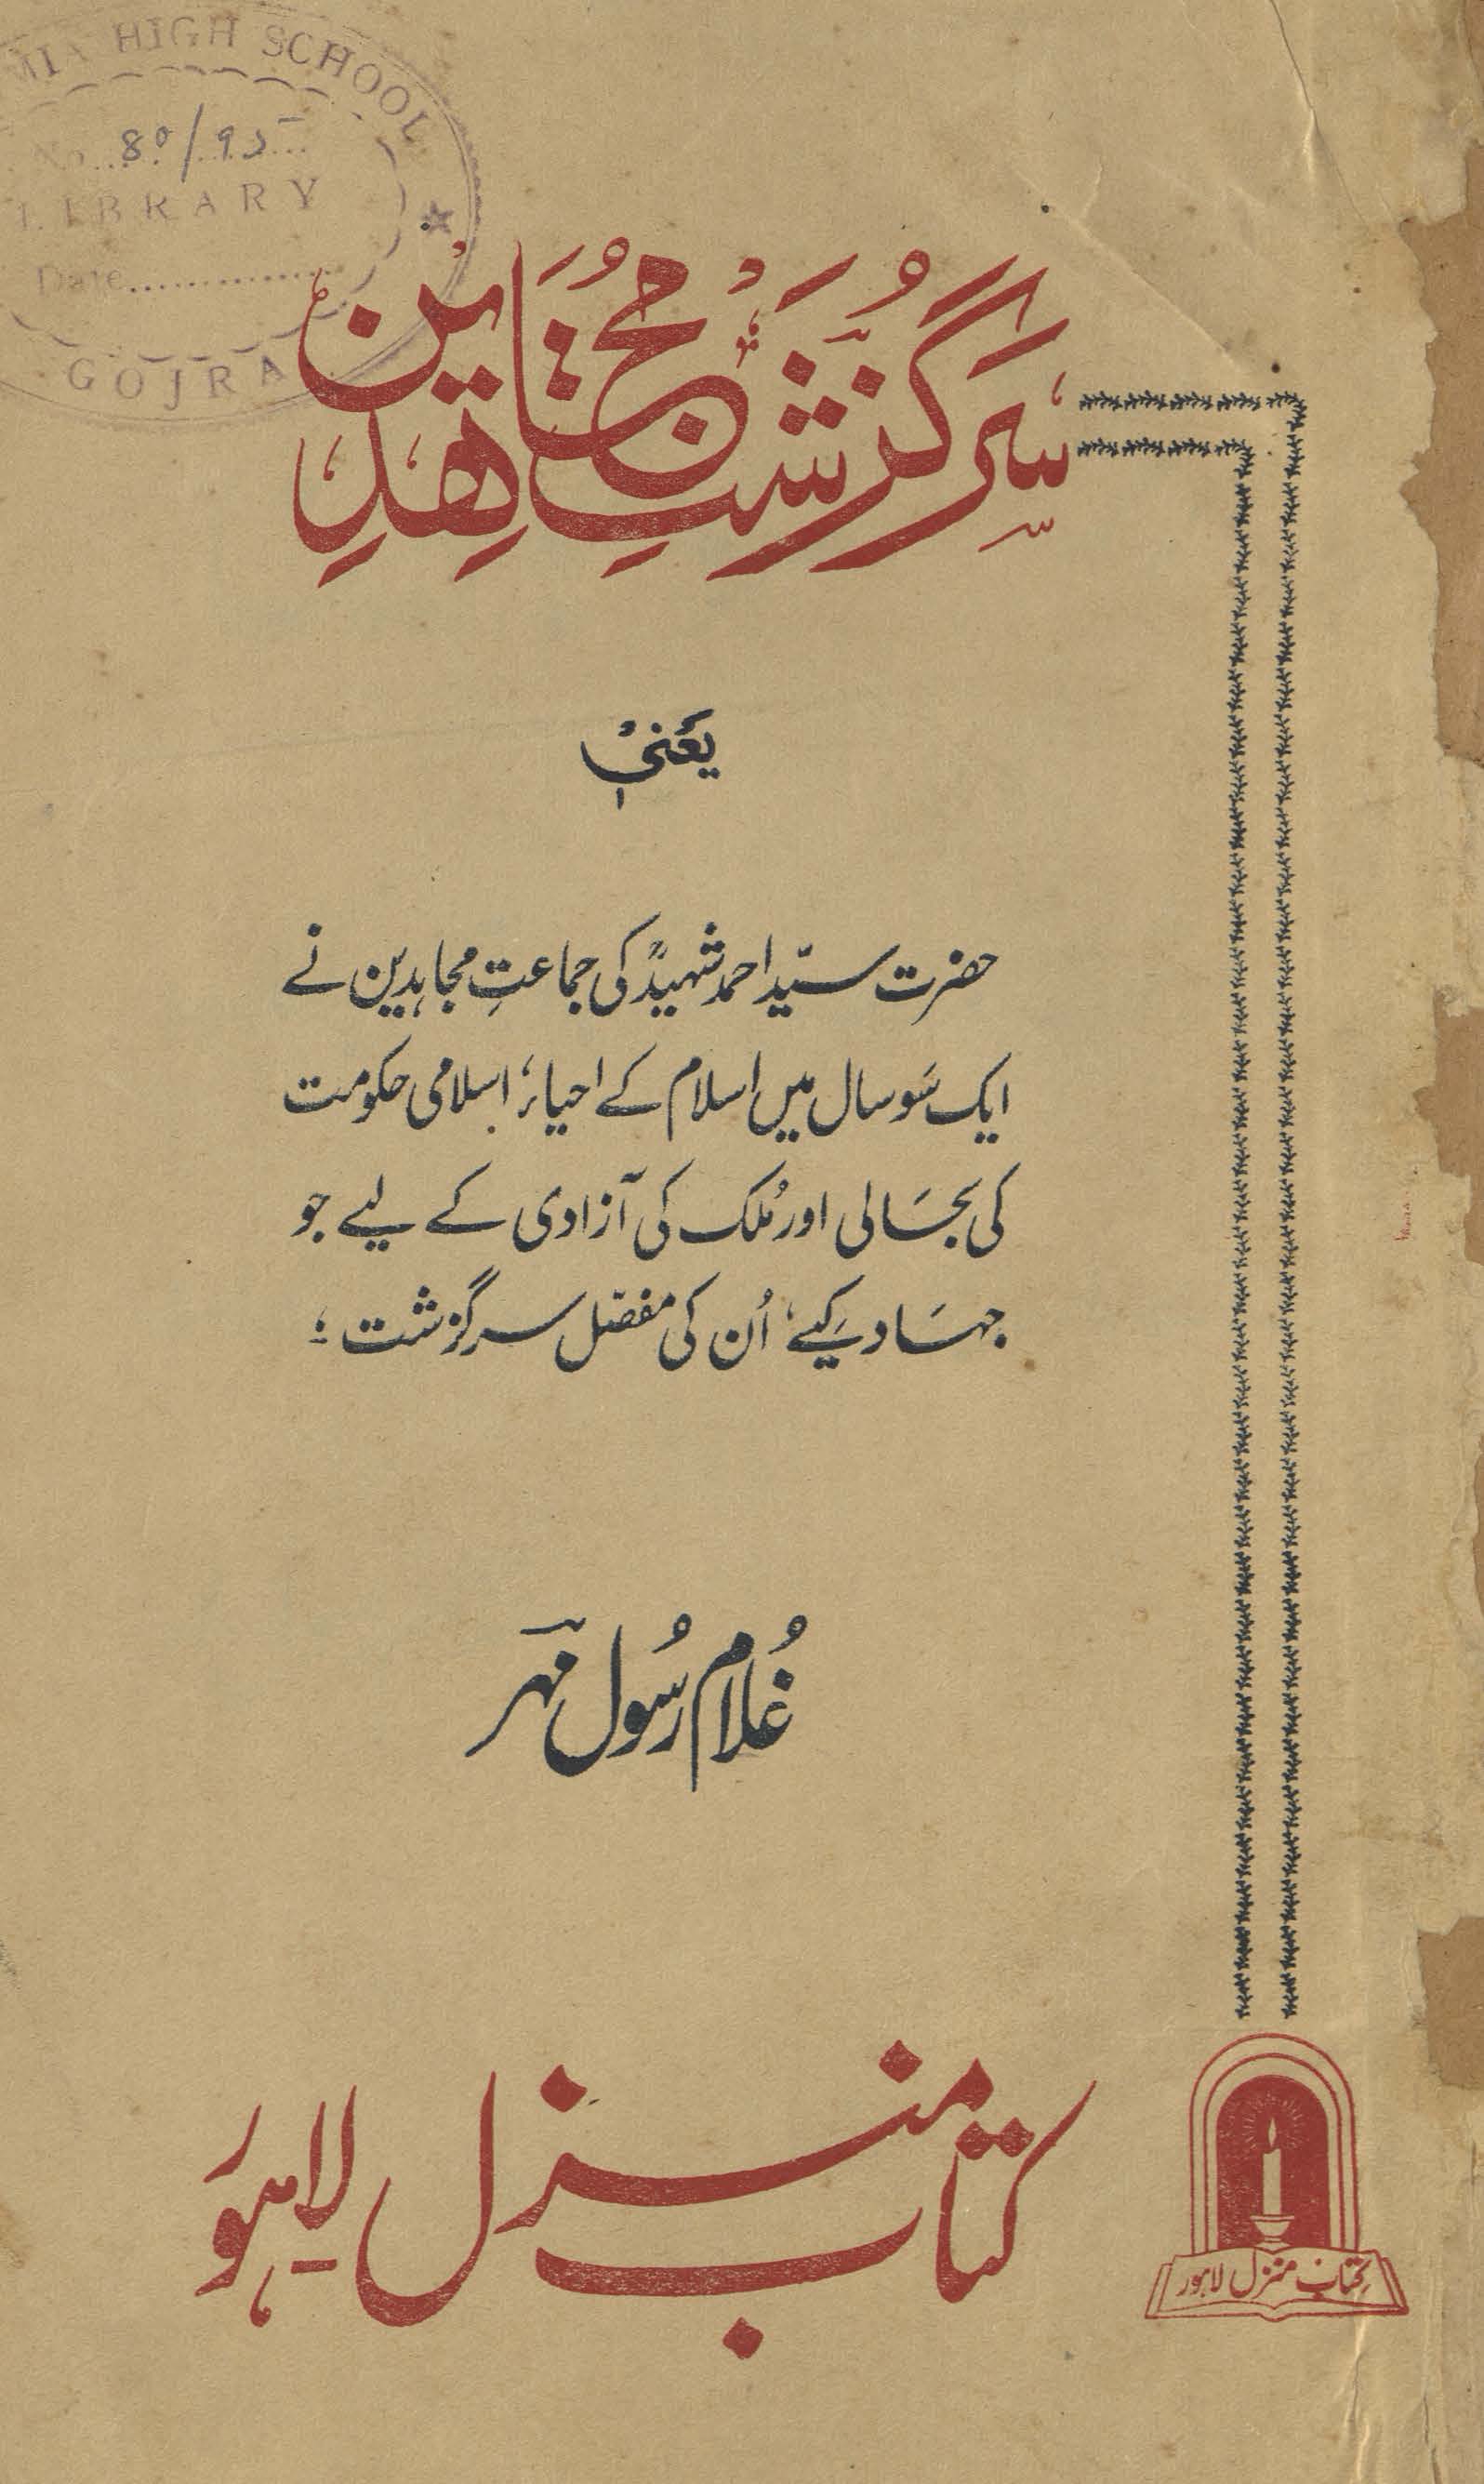 MIA HIGH SCHOOL
No. 80/95
LIBRARY
Date..............
GOJRA
سرگزشتِ مجاہدین
یعنی
حضرت سیّد احمد شہیدؒ کی جماعتِ مجاہدین نے
ایک سَو سال میں اسلام کے احیاء، اسلامی حکومت
کی بحَالی اور مُلک کی آزادی کے لیے جو
جہَاد کیے، اُن کی مفصّل سرگزشت ؛
غُلام رسُول مہر
کتاب منزل لاہور
کتاب منزل لاہور